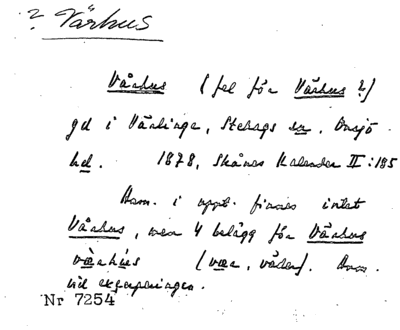 ? Värhus
Vårhus (fel för Värhus ?)
gd i Värlinge, Stehags sn. Onsjö
hd. 1878, Skånes Kalender II:185
Anm. i uppt. finnes intet
Vårhus, men 4 belägg för Värhus
(vær, väder). Anm.
vid excerperingen.
Nr 7254